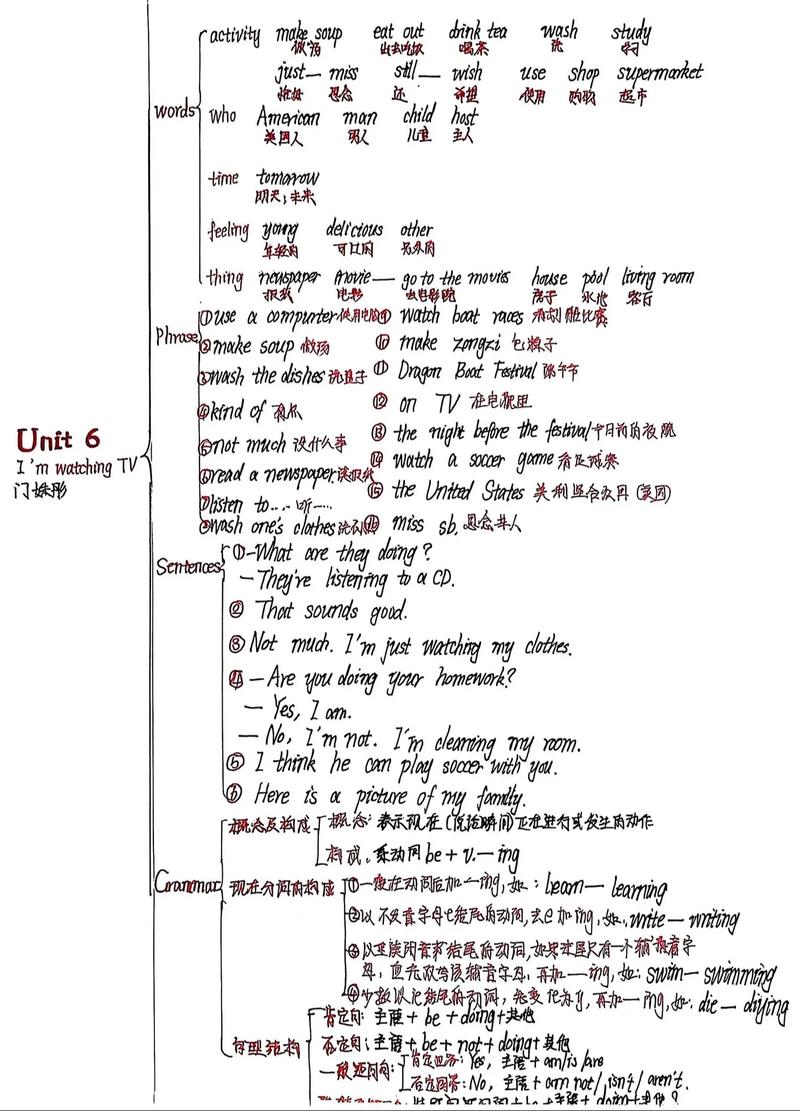 activity make soup eat out drink tea wash study
做汤 出去吃饭 喝茶 洗 学习
just— miss still— wish use shop supermarket
恰好 思念 还 希望 使用 购物 超市
words
who American man child host
美国人 男人 儿童 主人
time tomorrow
明天;未来
feeling young delicious other
年轻的 可口的 另外的
thing newspaper movie— go to the movis house pool living room
报纸 电影 去电影院 房子 水池 客厅
Phrase
①use a compurter使用电脑 ⑨ watch boat races 看划船比赛
②make soup 做汤 ⑩ make zongzi 包粽子
③wash the dishes 洗盘子 ⑪ Dragon Boat Festival 端午节
④kind of 有点 ⑫ on TV 在电视里
⑤not much 没什么事 ⑬ the night before the festival节日前的夜晚
⑥read a newspaper读报纸 ⑭ watch a soccer game 看足球赛
⑦listen to.... 听…… ⑮ the United States 美利坚合众国 (美国)
⑧wash one's clothes洗衣服 ⑯ miss sb. 思念某人
Unit 6
I'm watching TV
Sentences
①-What are they doing?
— They're listening to a CD.
② That sounds good.
③ Not much. I'm just watching my clothes.
④ — Are you doing your homework?
— Yes, I am.
— No, I'm not. I'm cleaning my room.
⑤ I think he can play soccer with you.
⑥ Here is a picture of my family.
Grammar
概念及构成 概念: 表示现在(说话瞬间)正在进行或发生的动作
构成: 系动词be + v.—ing
现在分词的构成 ①一般在动词后加—ing,如: learn— learning
②以不发音字母e结尾的动词,去e加ing,如: write — writing
③以重读闭音节结尾的动词,如果末尾只有一个辅音字
母,应先双写该辅音字母,再加—ing,如: swim— swimming
④少数以ie结尾的动词,先变ie为y,再加—ing,如: die — diying
句型结构
肯定句: 主语 + be + doing+其他
否定句: 主语+ be + not + doing+ 其他
一般疑问句: 肯定回答: Yes, 主语 + am/is/are
否定回答: No, 主语 + am not/ isn't/ aren't.